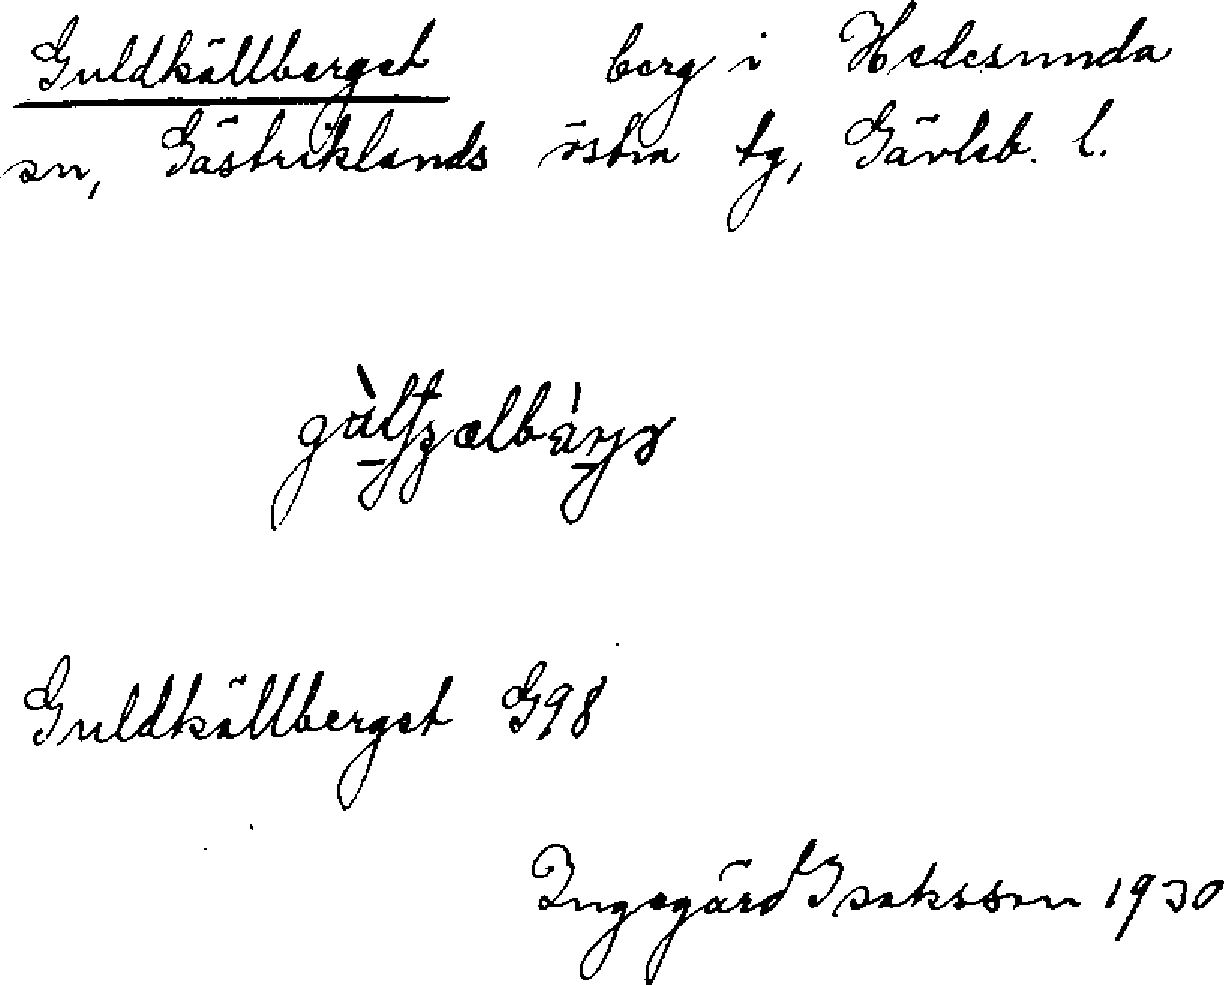 Guldkällberget berg i Hedesunda
sn, Gästriklands östra tg, Gävleb. l.
Guldkällberget G98
Ingegärd Isaksson 1930